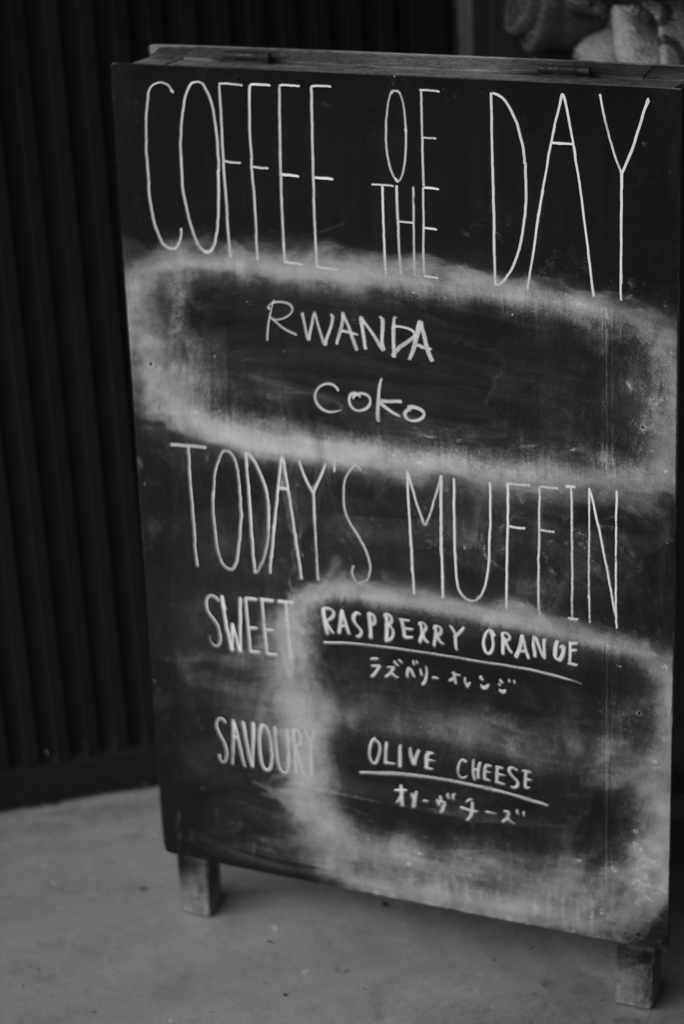 COFFEE OF THE DAY
RWANDA
COKO
TODAY'S MUFFIN
SWEET RASPBERRY ORANGE
ラズベリーオレンジ
SAVOURY OLIVE CHEESE
オリーヴチーズ